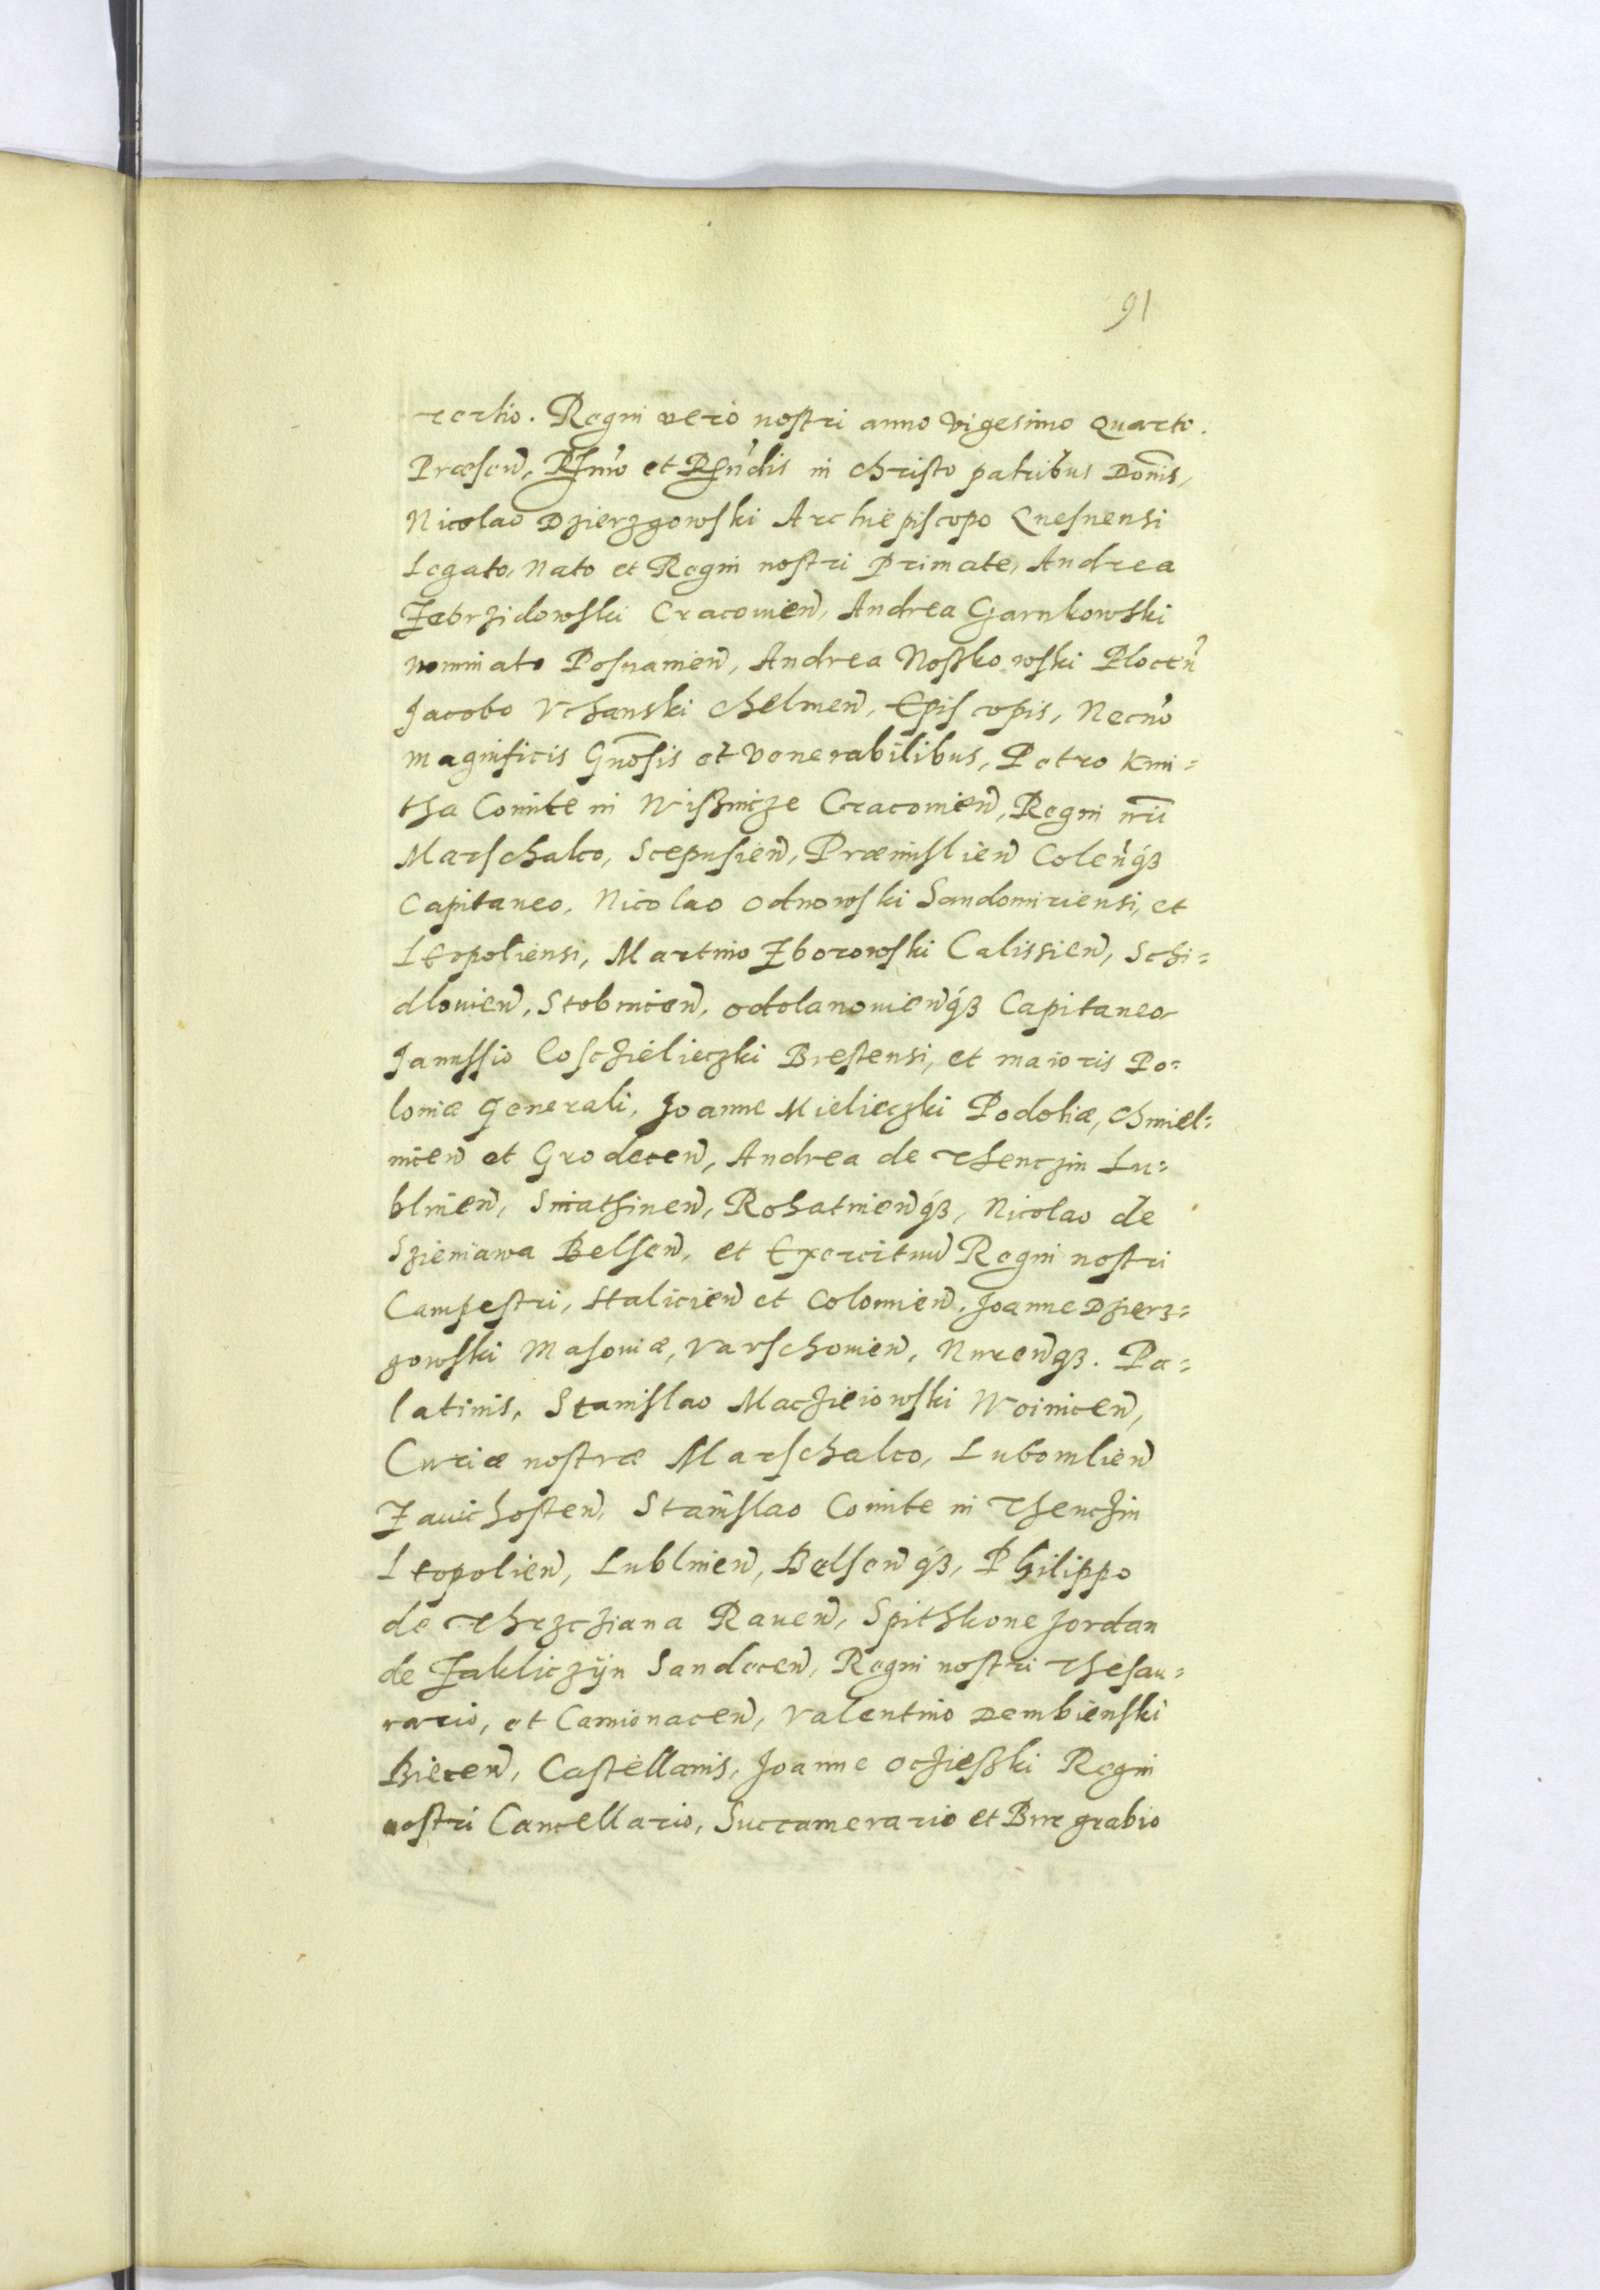 91
tertio. Regni vero nostri anno vigesimo quarto.
Præsen̄, Rſm̄o et Rn̄dis in Christo patribus Dom̄is,
Nicolao Dzierzgowski Archiepiscopo Gnesnensi
Legato, Nato et Regni nostri Primate, Andrea
Zebrzidowski Cracovien̄, Andrea Czarnkowski
nominato Posnanien̄, Andrea Noskowski Plocen̄
Jacobo Vchanski Chelmen̄, Episcopis, Necnō
magnificis Gnōsis et Venerabilibus, Petro Kmi=
tha Comite in Wisznicze Cracovien̄, Regni nr̄i
Marschalco, Scepusien̄, Præmislien̄ Colen̄qꝫ
Capitaneo, Nicolao Odnowski Sandomiriensi, et
Leopoliensi, Martino Zborowski Calissien̄, Schi=
dlovien̄, Stobnicen̄, Odolanovien̄qꝫ Capitaneo
Janussio Cosczielieczki Brestensi, et maioris Po=
loniæ Generali, Joanne Mielieczki Podoliæ, Chmiel=
nicen̄ et Grodecen̄, Andrea de Thenczin Lu=
blinen̄, Sniathinen̄, Rohatinen̄qꝫ, Nicolao de
Szieniawa Belsen̄, et Exercituū Regni nostri
Campestri, Halicien̄ et Colomien̄, Joanne Dzierz=
gowski Masoviæ, Varschovien̄, Nurcen̄qꝫ. Pa=
latinis, Stanislao Maczieiowski Woinicen̄,
Curiæ nostræ Marschalco, Lubomlien̄
Zavichosten̄, Stanislao Comite in Thenczin
Leopolien̄, Lublinen̄, Belsen̄qꝫ, Philippo
de Thrzcziana Raven̄, Spithkone Jordan
de Zakliczÿn Sandecen̄, Regni nostri Thesau=
rario, et Camionacen̄, Valentino Dembienski
Biecen̄, Castellanis, Joanne Oczieszki Regni
nostri Cancellario, Succamerario et Burgrabio